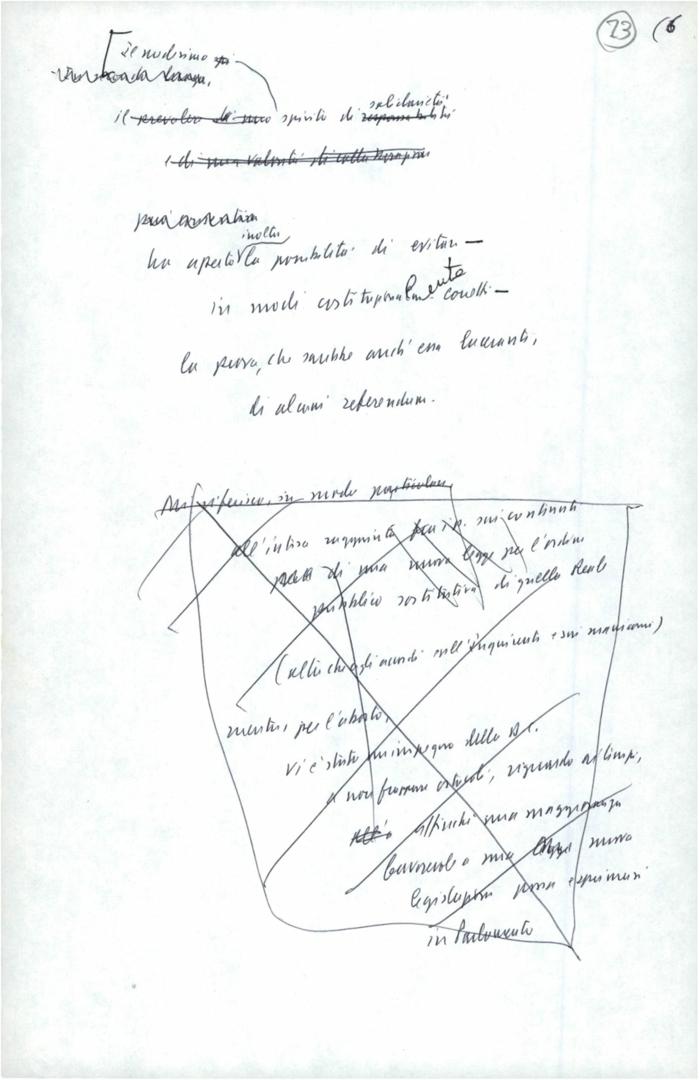 23 (6
il medesimo
il prevalere di uno spirito di solidarietà responsabilità
e di una volontà di collaborazione
ha aperto inoltre la possibilità di evitare —
in modi costituzionalmente corretti —
la prova, che sarebbe anch'essa lacerante,
di alcuni referendum.
Mi riferisco, in modo particolare
all'intesa raggiunta sui contenuti
di una nuova legge per l'ordine
pubblico sostitutiva di quella Reale
(oltre che agli accordi sull'Inquirente e sui manicomi)
mentre, per l'aborto,
vi è stato un impegno della D.C.
a non frapporre ostacoli, riguardo ai tempi,
affinché una maggioranza
favorevole a una legge nuova
legislazione possa esprimersi
in Parlamento